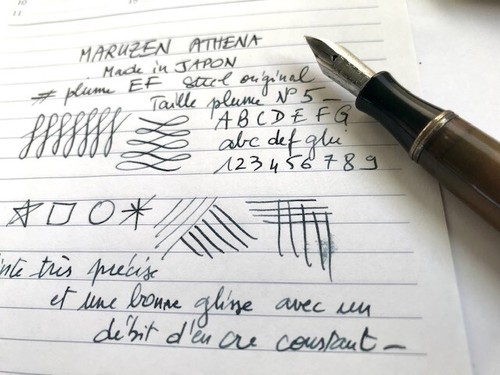 10
11
MARUZEN ATHENA
Made in JAPON
# plume EF Steel original
Taille plume N° 5 -
A B C D E F G
abc def ghi
1 2 3 4 5 6 7 8 9
très précise
et une bonne glisse avec un
débit d'encre constant -